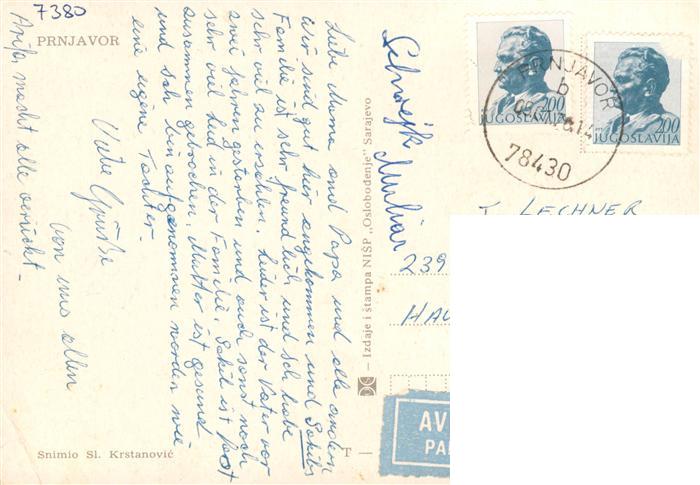 7380
PRNJAVOR
Liebe Mama und Papa und alle andern
Wir sind gut hier angekommen und Sakibs
Familie ist sehr freundlich und ich habe
sehr viel zu erzählen. Leider ist der Vater vor
zwei Jahren gestorben und auch sonst noch
sehr viel Leid in der Familie. Sakib ist fast
zusammen gebrochen. Mutter ist gesund
und ich bin aufgenommen worden wie
eine eigene Tochter.
Viele Grüsse
von uns allen
macht alle verückt -
Snimio Sl. Krstanović
Izdaje i štampa NIŠP „Oslobođenje“ Sarajevo
T —
2,00
JUGOSLAVIJA
2,00
JUGOSLAVIJA
PRNJAVOR
b
78430
LECHNER
239
HAU
AV
PAR